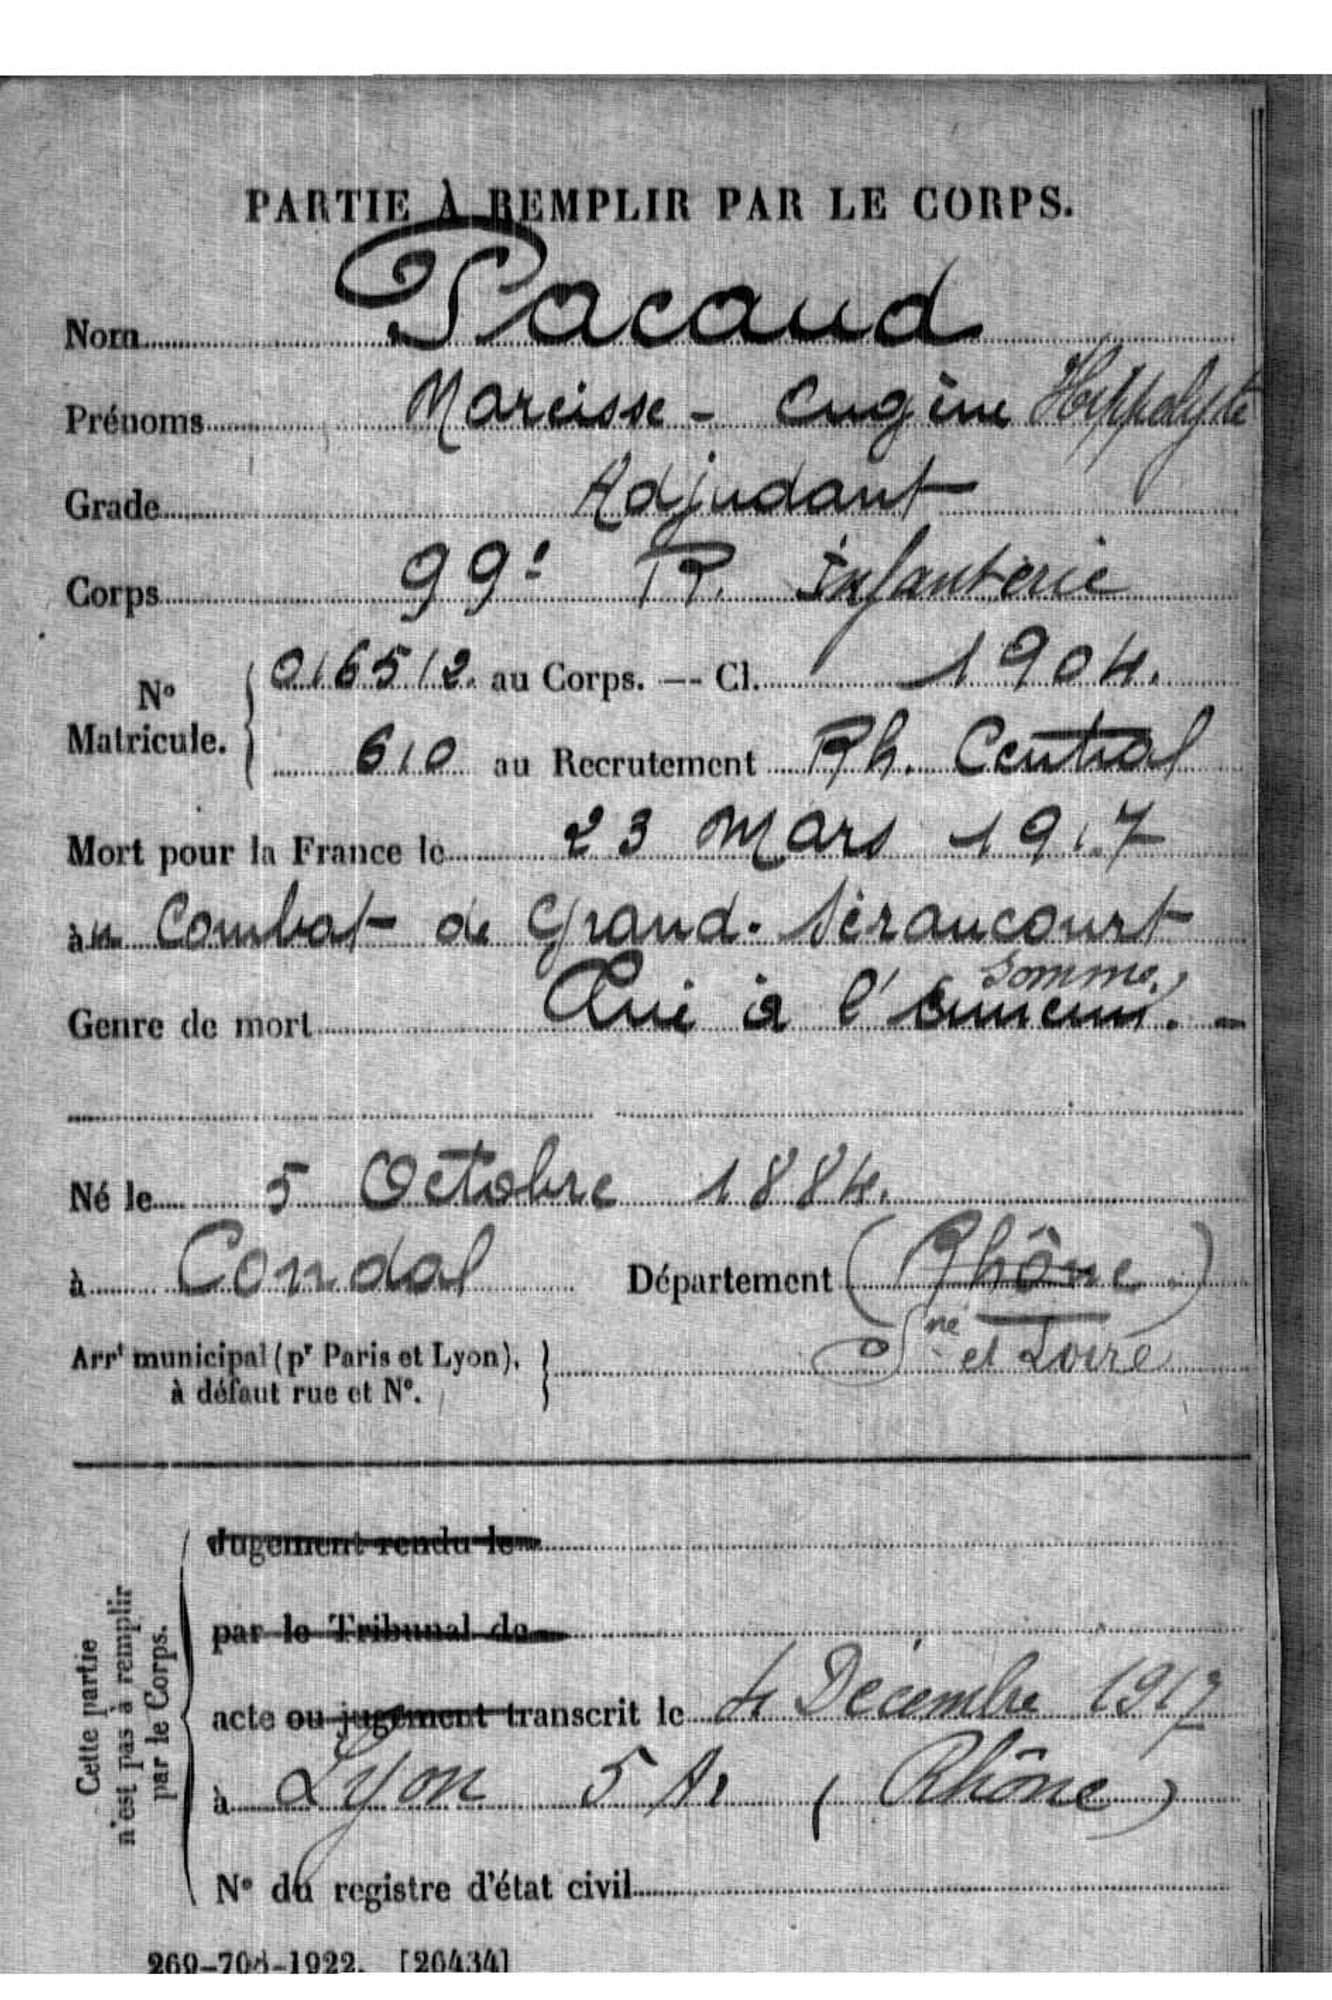 PARTIE À REMPLIR PAR LE CORPS.
Nom Pacaud
Prénoms Narcisse - Eugène Hippolyte
Grade Adjudant
Corps 99e R. Infanterie
N° Matricule. { 016512 au Corps. — Cl. 1904.
610 au Recrutement Rh. Central
Mort pour la France le 23 Mars 1917
au Combat de Grand-Séraucourt
Somme.
Genre de mort Tué à l'ennemi. -
Né le 5 Octobre 1884.
à Condal Département (Rhône)
Sne et Loire
Arrt municipal (pr Paris et Lyon), à défaut rue et N°. }
Cette partie n'est pas à remplir par le Corps.
Jugement rendu le
par le Tribunal de
acte ou jugement transcrit le 4 Décembre 1917
à Lyon 5 Ar (Rhône)
N° du registre d'état civil
269-708-1922. [26434]